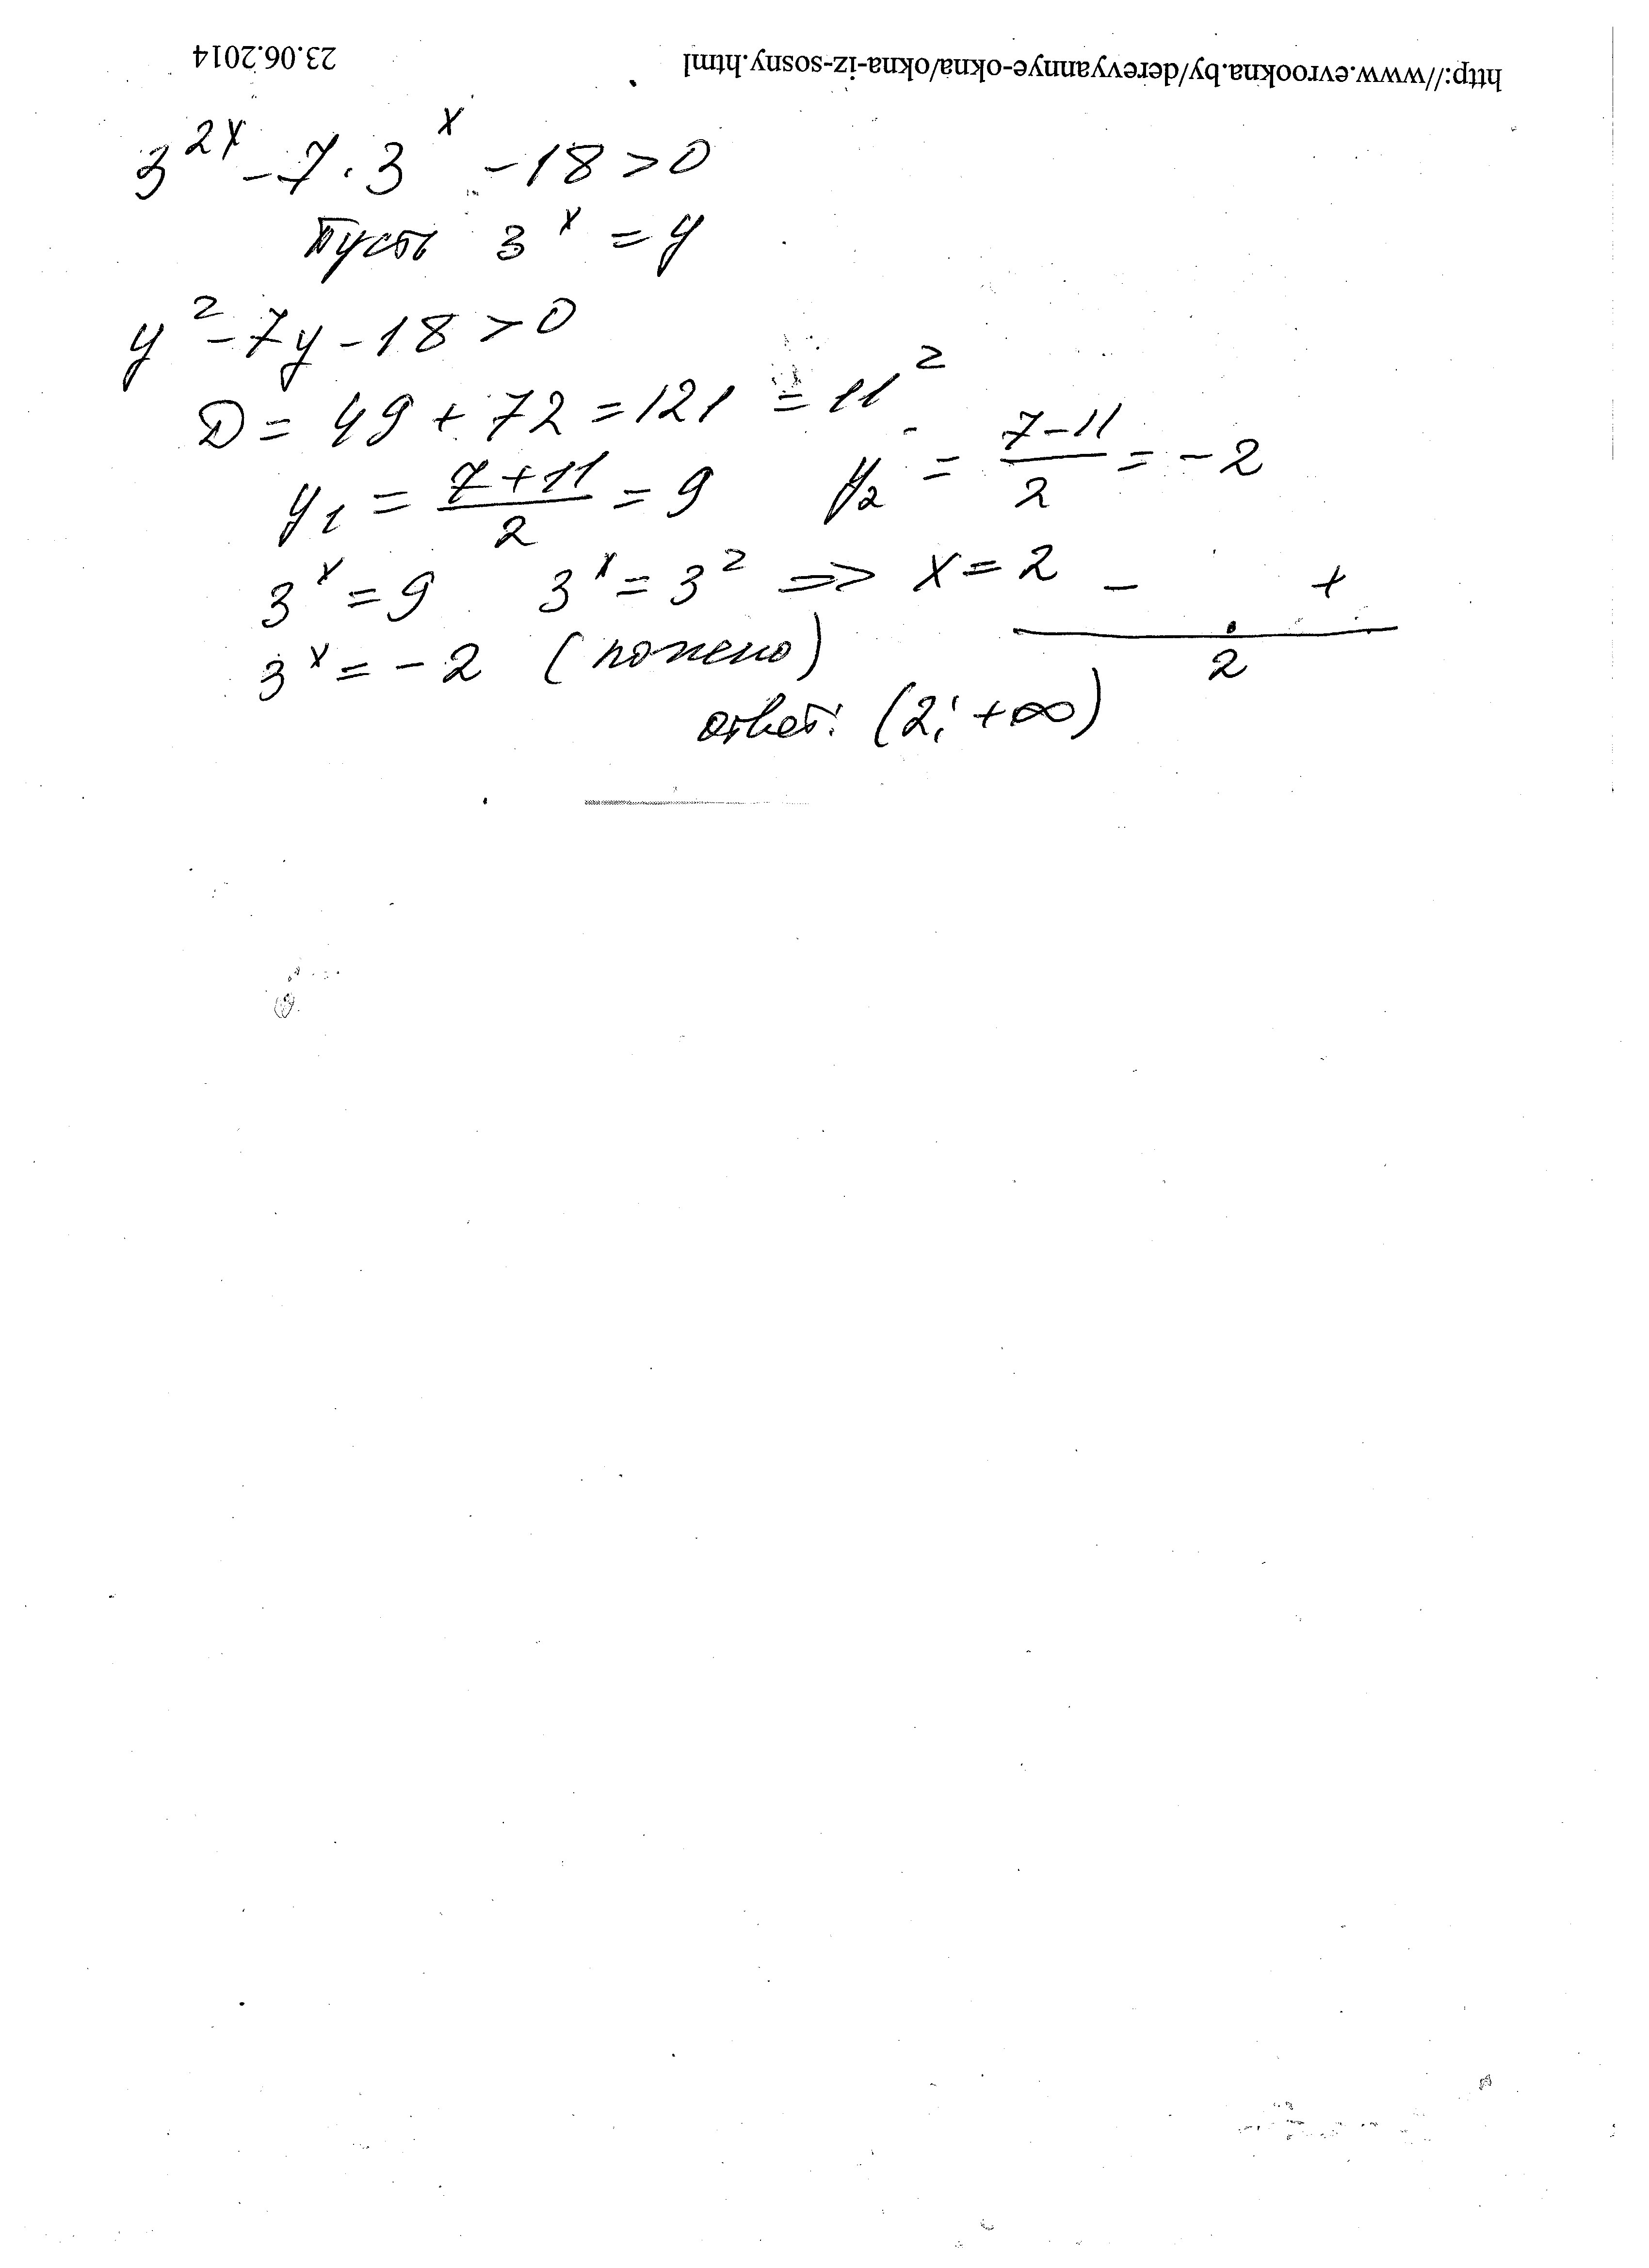 http://www.evrookna.by/derevyannye-okna/okna-iz-sosny.html 23.06.2014
3^{2x} - 7 · 3^x - 18 > 0
Пусть 3^x = y
y^2 - 7y - 18 > 0
D = 49 + 72 = 121 = 11^2
y_1 = \frac{7+11}{2} = 9 y_2 = \frac{7-11}{2} = -2
3^x = 9 3^x = 3^2 => x = 2 - +
3^x = -2 (ложно) 2
ответ: (2; +∞)